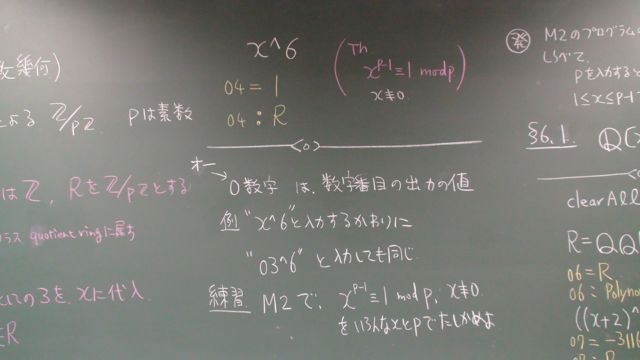 数幾何)
Z/pZ pは素数
はZ, RをZ/pZとする
ラス quotient ringに属す
の3を、xに代入
x^6
o4 = 1
o4 : R
(Th x^{p-1}≡1 mod p
x≢0)
<o>
オー
o数字 は、数字番目の出力の値
例 "x^6"と入力するかわりに
"o3^6" と入力しても同じ
練習 M2で、x^{p-1}≡1 mod p, x≢0
をいろんなxとpでたしかめよ
発 M2のプログラムの
しらべて、
pを入力すると
1≤x≤p-1
§6.1. Q[x
<o>
clearAll
R=QQ
o6=R
o6: Polyno
((x+2)^
o7 = -3116